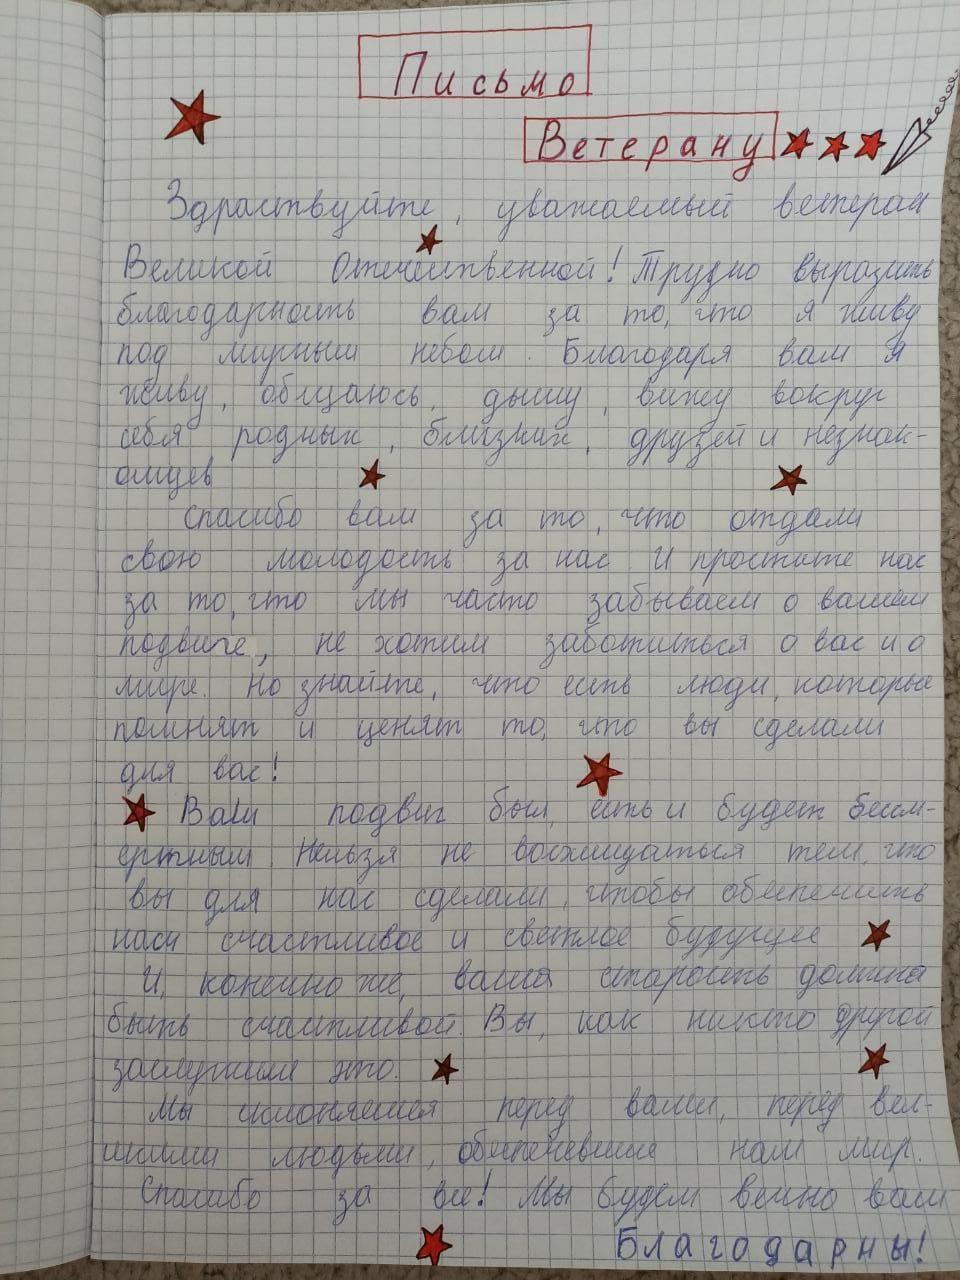 Письмо
Ветерану
Здраствуйте, уважаемый ветеран
Великой Отечественной! Трудно выразить
благодарность вам за то, что я живу
под мирным небом. Благодаря вам я
живу, общаюсь, дышу, вижу вокруг
себя родных, близких, друзей и незнак-
омцев
спасибо вам за то, что отдали
свою молодость за нас. И простите нас
за то, что мы часто забываем о вашем
подвиге, не хотим заботиться о вас и о
мире. Но знайте, что есть люди, которые
помнят и ценят то, что вы сделали
для вас!
Ваш подвиг был, есть и будет бессм-
ертным. Нельзя не восхищаться тем, что
вы для нас сделали, чтобы обеспечить
нам счастливое и светлое будущее
И, конечно же, ваша старость должна
быть счастливой. Вы, как никто другой
заслужили это.
Мы склоняемся перед вами, перед вел-
икими людьми, обеспечевшие нам мир.
Спасибо за все! Мы будем вечно вам
Благодарны!